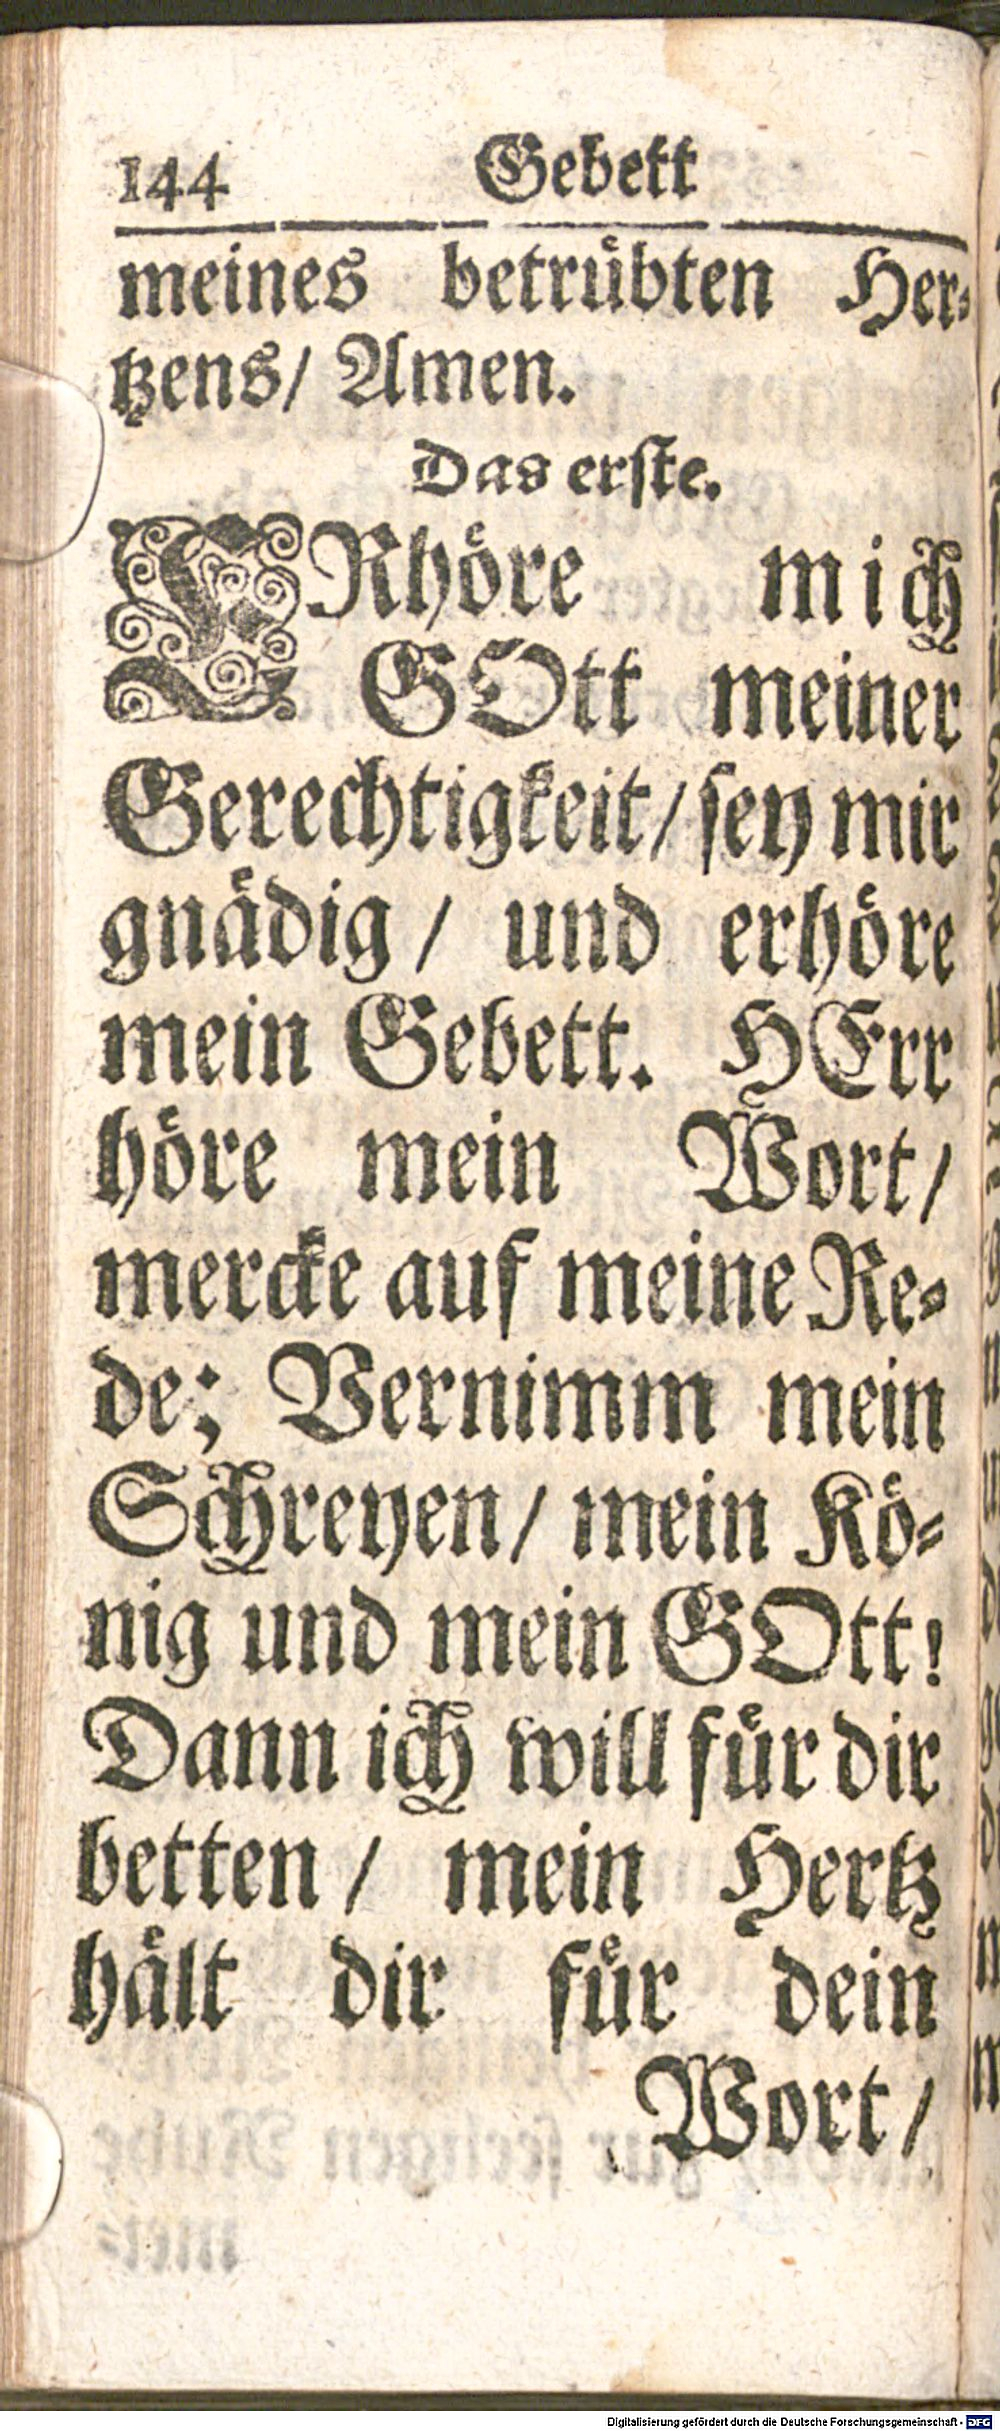 144 Gebett
meines betrübten Her-
tzens/ Amen.
Das erste.
ERhöre mich
GOtt meiner
Gerechtigkeit/ sey mir
gnädig/ und erhöre
mein Gebett. HErr
höre mein Wort/
mercke auf meine Re-
de; Vernimm mein
Schreyen/ mein Kö-
nig und mein GOtt!
Dann ich will für dir
betten/ mein Hertz
hält dir für dein
Wort/
Digitalisierung gefördert durch die Deutsche Forschungsgemeinschaft - DFG